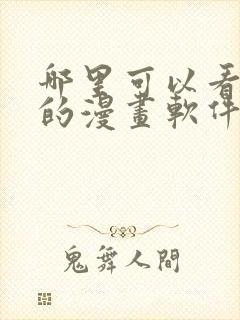 哪里可以看
的漫畫軟件
鬼舞人間